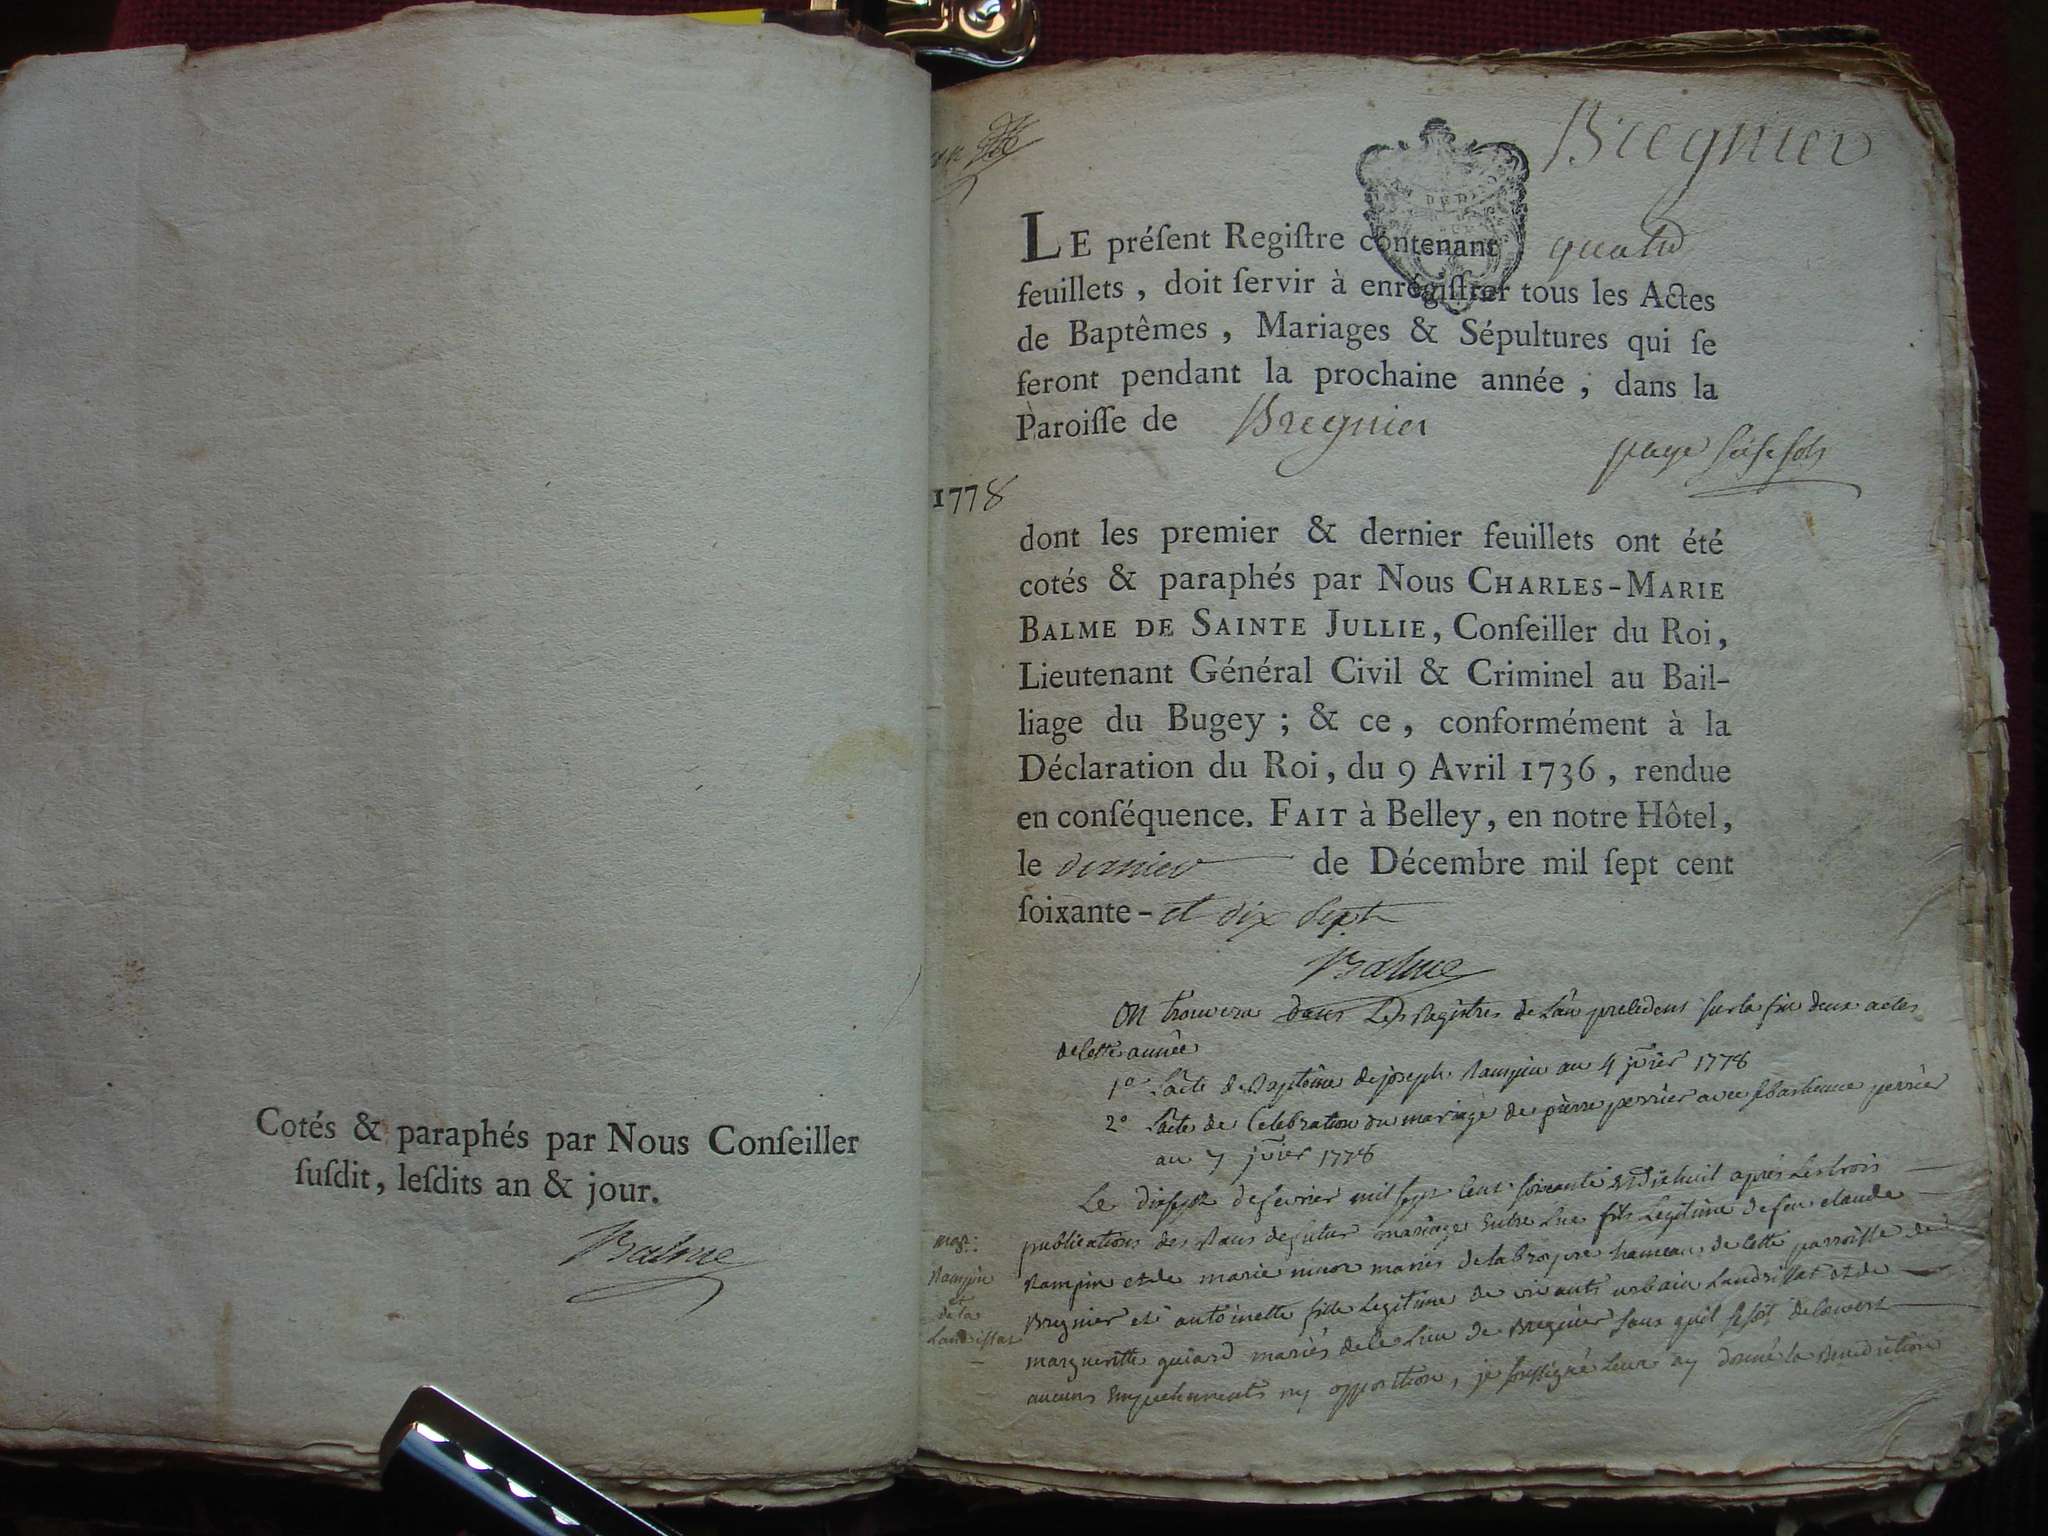 Cotés & paraphés par Nous Conſeiller
ſuſdit, leſdits an & jour.
Balme
Bregnier
LE préſent Regiſtre contenant quatre
feuillets, doit ſervir à enrégiſtrer tous les Actes
de Baptêmes, Mariages & Sépultures qui ſe
feront pendant la prochaine année, dans la
Paroiſſe de Bregnier
paye seise sols
1778
dont les premier & dernier feuillets ont été
cotés & paraphés par Nous CHARLES-MARIE
BALME DE SAINTE JULLIE, Conſeiller du Roi,
Lieutenant Général Civil & Criminel au Bail-
liage du Bugey ; & ce, conformément à la
Déclaration du Roi, du 9 Avril 1736, rendue
en conſéquence. FAIT à Belley, en notre Hôtel,
le dernier de Décembre mil ſept cent
ſoixante- et dix sept
Balme
on trouvera dans Les Registres de L'an precedens sur la fin deux actes
de cette année
1º L'acte de Baptême de joseph Rampin au 4 jvier 1778
2º L'acte de Celebration du mariage de pierre perrier avec perrier
au 7 jvier 1778
Le dixsept de fevrier mil sept cent soixante et dixhuit après Les trois
publications des Bans de futur mariage entre Luc fils Legitime de feu claude
Rampin et de marie mariés de la Bruyere hameau de cette parroisse de
Bregnier et antoinette fille Legitime de vivants urbain Landissat et de
margueritte guiard mariés de ce Lieu de Bregnier sans quil se soit decouvert
aucuns Empechements ny opposition, je soussigné Leur ay donné la Benediction
mar:
Rampin
et
de la
Landissat